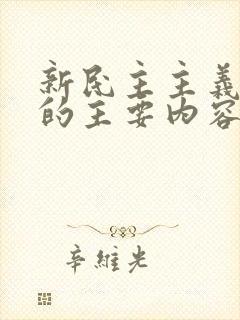 新民主主義
的主要内容
辛維光